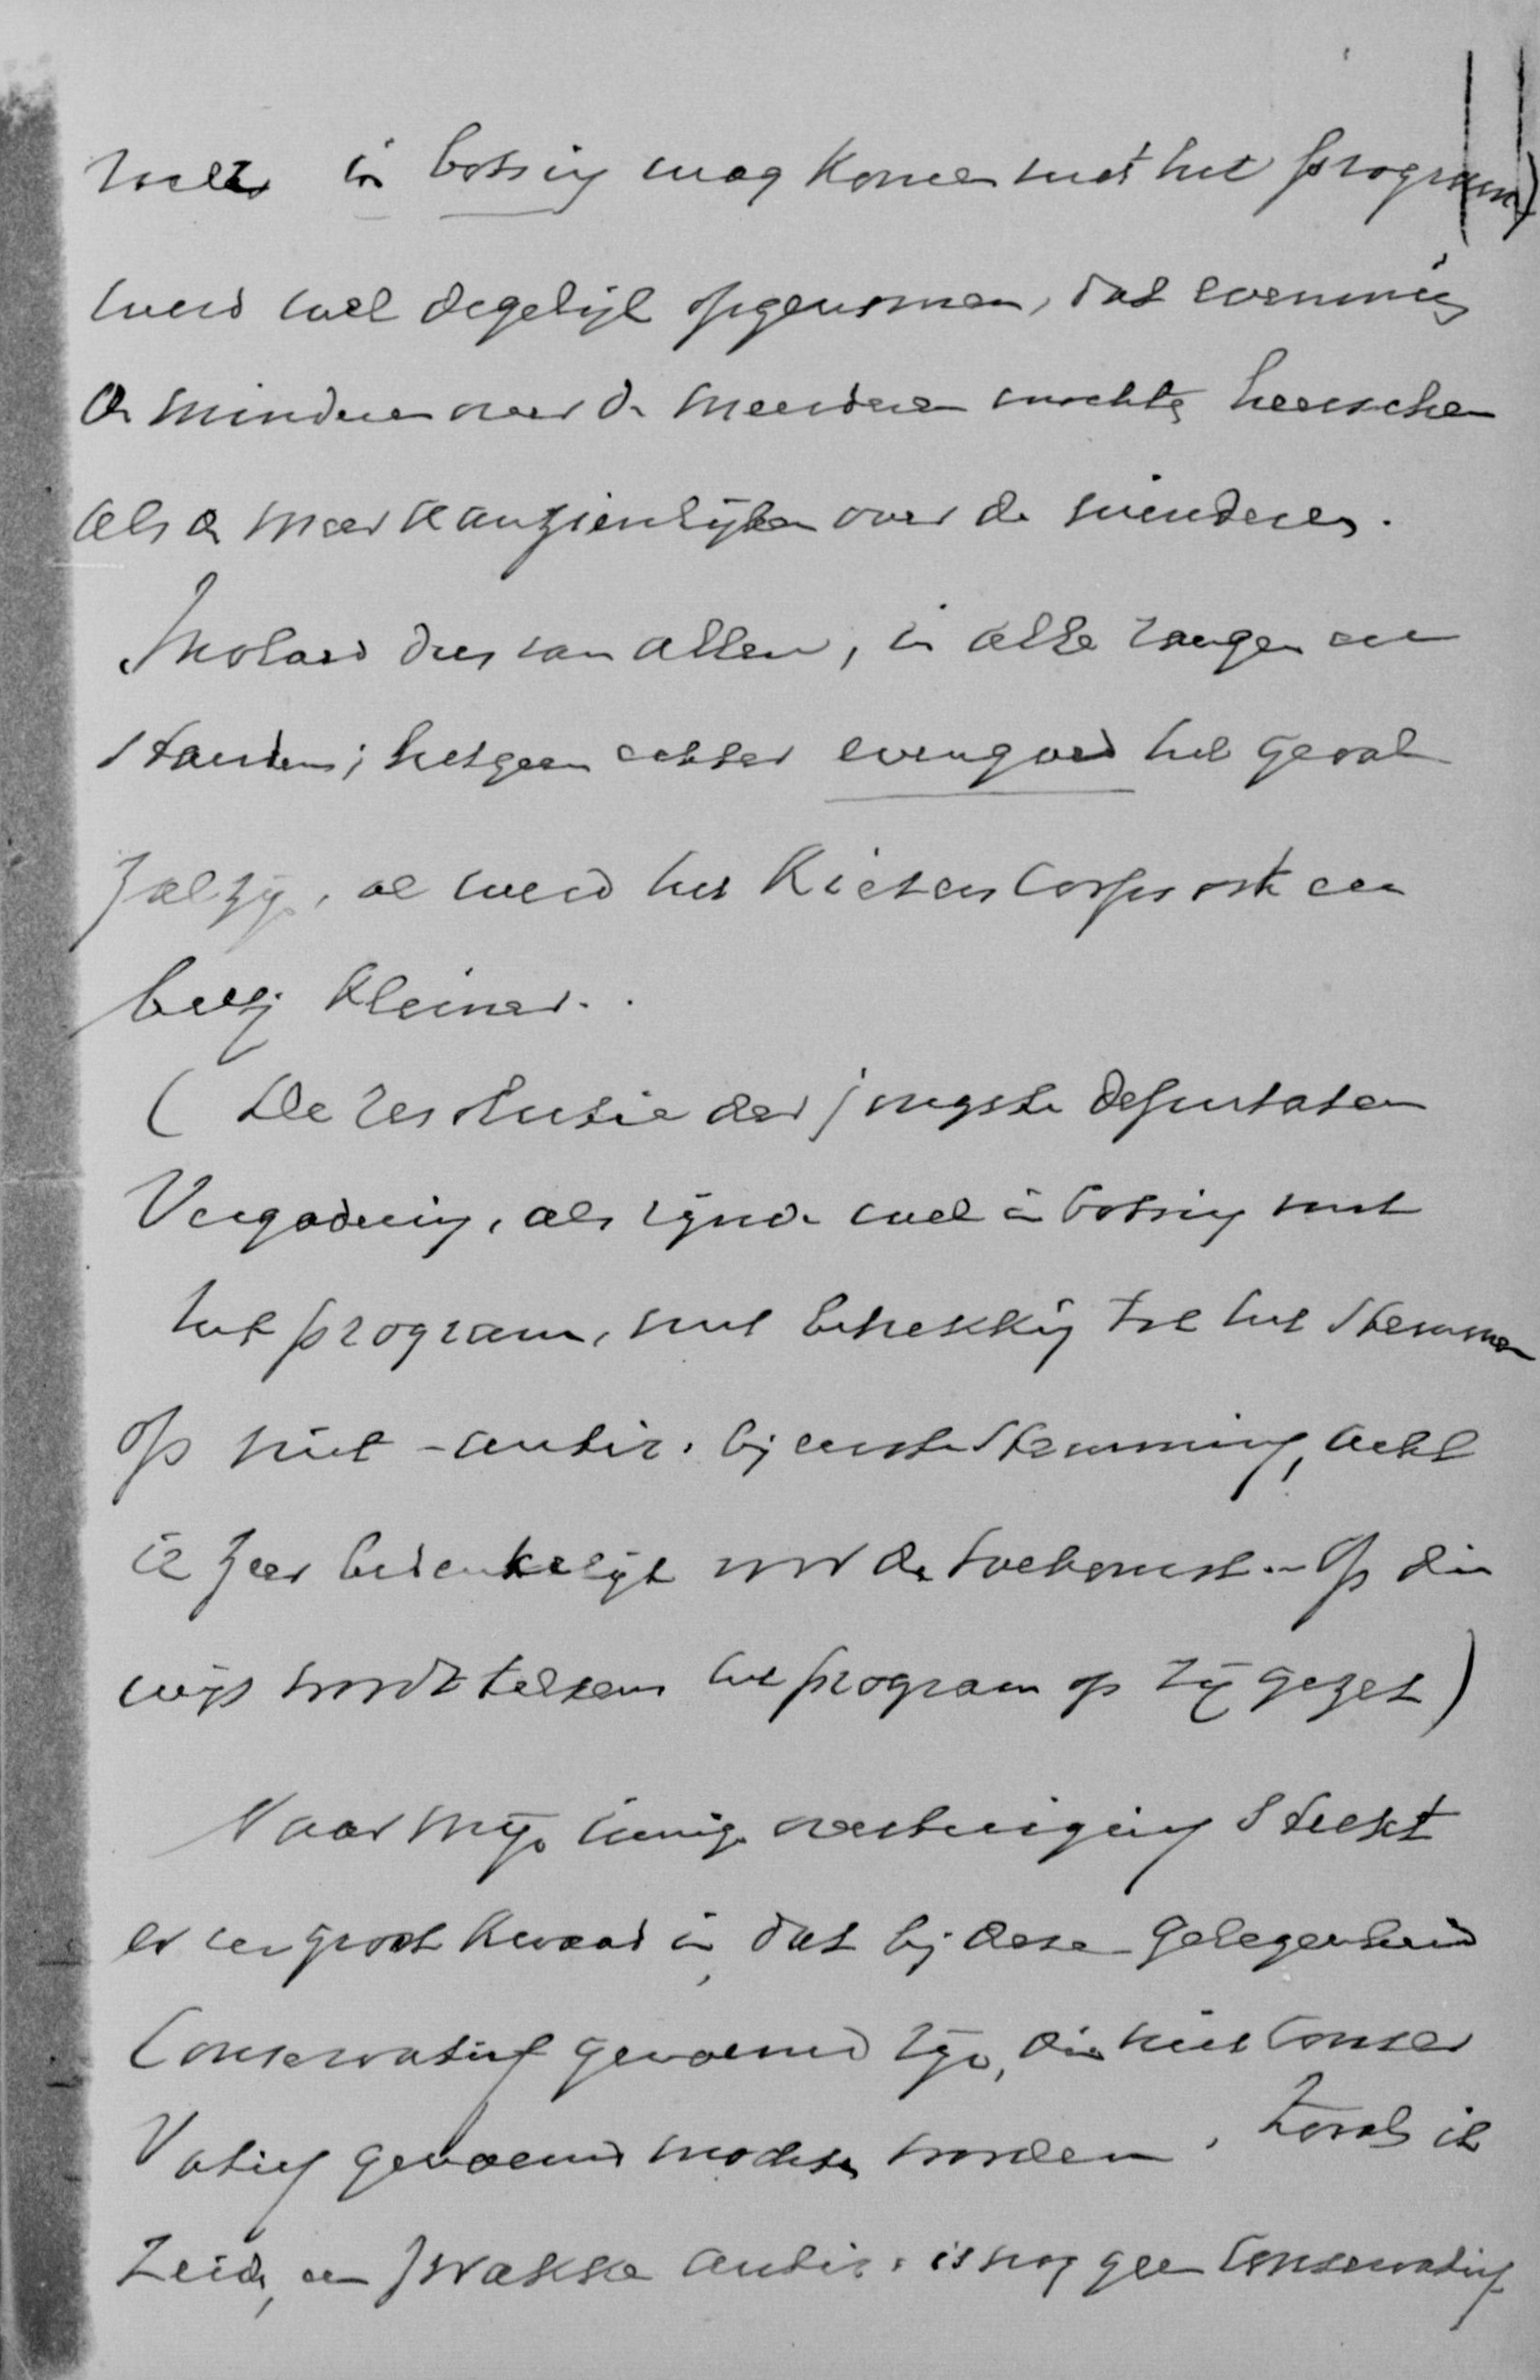 in botsing mag komen met het program)
werd wel degelijk opgenomen, dat evenmin
de minderen over de meerderen mochten heerschen
als de meer aanzienlijken over de minderen.
dus van allen, in alle rangen en
standen; hetgeen echter evengoed het geval
zal zijn, al werd het Kiezerscorps ook een
beetj kleiner.
(De resolutie der jongste deputaten
Vergadering, als zijnde wel in botsing met
het program, met betrekking tot het stemmen
op niet-antir. bij eerste stemming, acht
ik zeer bedenkelijk voor de toekomst. - Op die
wijs wordt telkens het program op zij gezet)
Naar mijn innige overtuiging steekt
er een groot kwaad in, dat bij deze gelegenheid
Conservatief genoemd zijn, die niet Conser
Vatief genoemd mochten worden. Zooals ik
zeide, een zwakke antir. is nog geen Conservatief